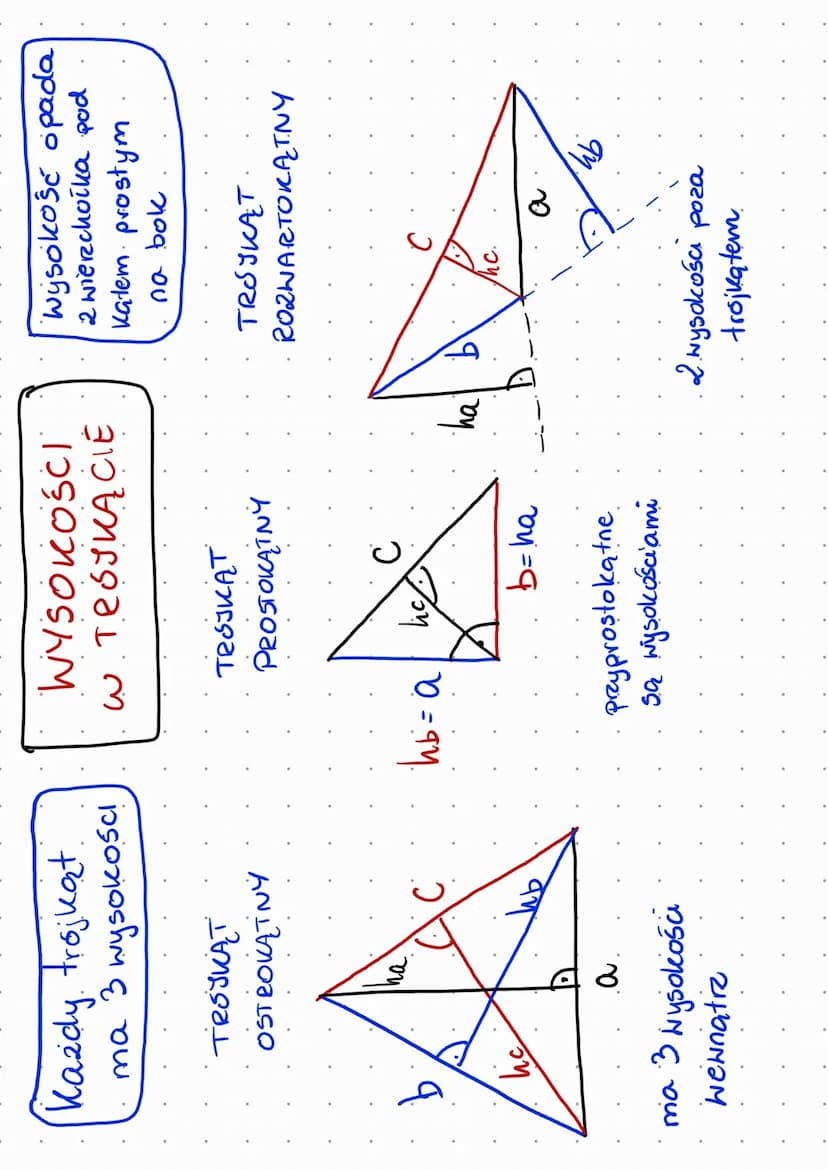 Każdy trójkąt
ma 3 wysokości
WYSOKOŚCI
W TRÓJKĄCIE
Wysokość opada
z wierzchołka pod
kątem prostym
na bok
TRÓJKĄT
OSTROKĄTNY
b
ha
C
hc
hb
a
ma 3 wysokości
wewnątrz
TRÓJKĄT
PROSTOKĄTNY
hb = a
hc
C
b = ha
przyprostokątne
są wysokościami
TRÓJKĄT
ROZWARTOKĄTNY
ha
b
C
hc
a
hb
2 wysokości poza
trójkątem